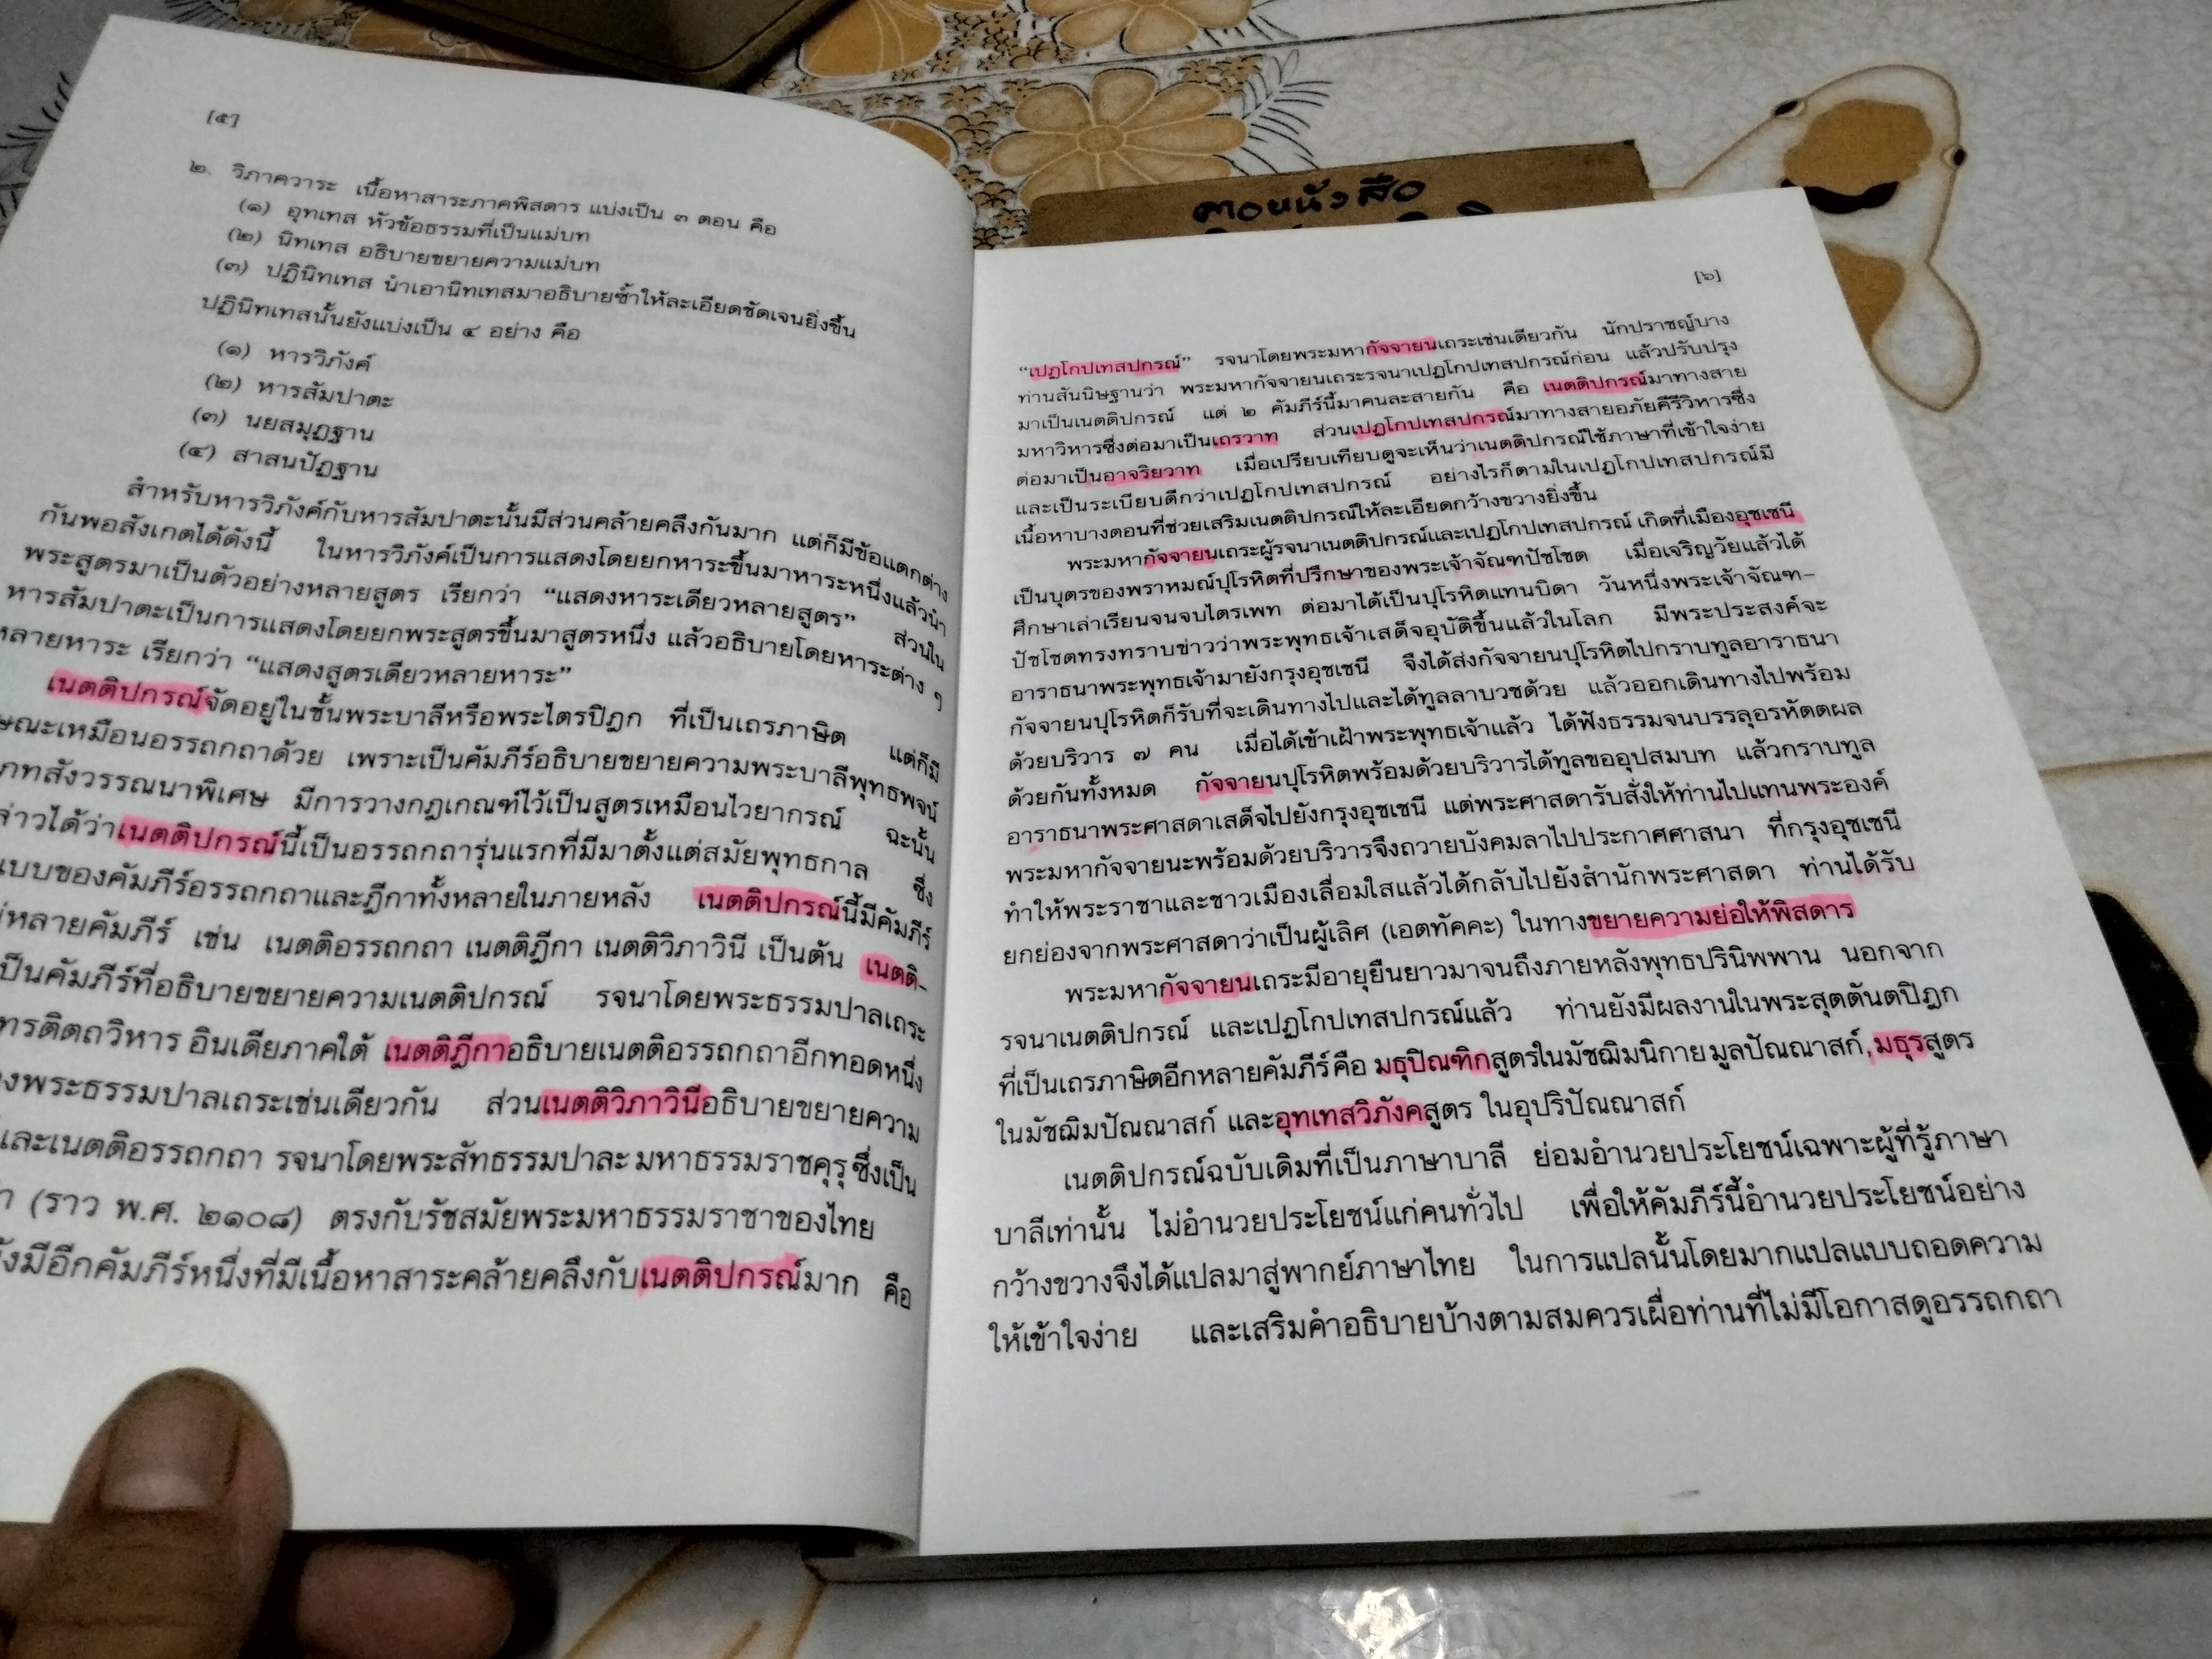 [๕]
๒. วิภาควาระ เนื้อหาสาระภาคพิสดาร แบ่งเป็น ๓ ตอน คือ
(๑) อุทเทส หัวข้อธรรมที่เป็นแม่บท
(๒) นิทเทส อธิบายขยายความแม่บท
(๓) ปฏินิทเทส นำเอานิทเทสมาอธิบายซ้ำให้ละเอียดชัดเจนยิ่งขึ้น
ปฏินิทเทสนั้นยังแบ่งเป็น ๔ อย่าง คือ
(๑) หารวิภังค์
(๒) หารสัมปาตะ
(๓) นยสมุฏฐาน
(๔) สาสนปัฏฐาน
สำหรับหารวิภังค์กับหารสัมปาตะนั้นมีส่วนคล้ายคลึงกันมาก แต่ก็มีข้อแตกต่าง
กันพอสังเกตได้ดังนี้ ในหารวิภังค์เป็นการแสดงโดยยกหาระขึ้นมาหาระหนึ่งแล้วนำ
พระสูตรมาเป็นตัวอย่างหลายสูตร เรียกว่า “แสดงหาระเดียวหลายสูตร” ส่วนใน
หารสัมปาตะเป็นการแสดงโดยยกพระสูตรขึ้นมาสูตรหนึ่ง แล้วอธิบายโดยหาระต่าง ๆ
หลายหาระ เรียกว่า “แสดงสูตรเดียวหลายหาระ”
เนตติปกรณ์จัดอยู่ในชั้นพระบาลีหรือพระไตรปิฎก ที่เป็นเถรภาษิต แต่ก็มี
ษณะเหมือนอรรถกถาด้วย เพราะเป็นคัมภีร์อธิบายขยายความพระบาลีพุทธพจน์
ภทสังวรรณนาพิเศษ มีการวางกฎเกณฑ์ไว้เป็นสูตรเหมือนไวยากรณ์ ฉะนั้น
ล่าวได้ว่าเนตติปกรณ์นี้เป็นอรรถกถารุ่นแรกที่มีมาตั้งแต่สมัยพุทธกาล ซึ่ง
แบบของคัมภีร์อรรถกถาและฎีกาทั้งหลายในภายหลัง เนตติปกรณ์นี้มีคัมภีร์
หลายคัมภีร์ เช่น เนตติอรรถกถา เนตติฎีกา เนตติวิภาวินี เป็นต้น เนตติ-
ป็นคัมภีร์ที่อธิบายขยายความเนตติปกรณ์ รจนาโดยพระธรรมปาลเถระ
ทรติตถวิหาร อินเดียภาคใต้ เนตติฎีกาอธิบายเนตติอรรถกถาอีกทอดหนึ่ง
งพระธรรมปาลเถระเช่นเดียวกัน ส่วนเนตติวิภาวินีอธิบายขยายความ
และเนตติอรรถกถา รจนาโดยพระสัทธรรมปาละ มหาธรรมราชคุรุ ซึ่งเป็น
า (ราว พ.ศ. ๒๑๐๘) ตรงกับรัชสมัยพระมหาธรรมราชาของไทย
ังมีอีกคัมภีร์หนึ่งที่มีเนื้อหาสาระคล้ายคลึงกับเนตติปกรณ์มาก คือ
คอยหนังสือ
[๖]
“เปฏโกปเทสปกรณ์” รจนาโดยพระมหากัจจายนเถระเช่นเดียวกัน นักปราชญ์บาง
ท่านสันนิษฐานว่า พระมหากัจจายนเถระรจนาเปฏโกปเทสปกรณ์ก่อน แล้วปรับปรุง
มาเป็นเนตติปกรณ์ แต่ ๒ คัมภีร์นี้มาคนละสายกัน คือ เนตติปกรณ์มาทางสาย
มหาวิหารซึ่งต่อมาเป็นเถรวาท ส่วนเปฏโกปเทสปกรณ์มาทางสายอภัยคีรีวิหารซึ่ง
ต่อมาเป็นอาจริยวาท เมื่อเปรียบเทียบดูจะเห็นว่าเนตติปกรณ์ใช้ภาษาที่เข้าใจง่าย
และเป็นระเบียบดีกว่าเปฏโกปเทสปกรณ์ อย่างไรก็ตามในเปฏโกปเทสปกรณ์มี
เนื้อหาบางตอนที่ช่วยเสริมเนตติปกรณ์ให้ละเอียดกว้างขวางยิ่งขึ้น
พระมหากัจจายนเถระผู้รจนาเนตติปกรณ์และเปฏโกปเทสปกรณ์ เกิดที่เมืองอุชเชนี
เป็นบุตรของพราหมณ์ปุโรหิตที่ปรึกษาของพระเจ้าจัณฑปัชโชต เมื่อเจริญวัยแล้วได้
ศึกษาเล่าเรียนจนจบไตรเพท ต่อมาได้เป็นปุโรหิตแทนบิดา วันหนึ่งพระเจ้าจัณฑ-
ปัชโชตทรงทราบข่าวว่าพระพุทธเจ้าเสด็จอุบัติขึ้นแล้วในโลก มีพระประสงค์จะ
อาราธนาพระพุทธเจ้ามายังกรุงอุชเชนี จึงได้ส่งกัจจายนปุโรหิตไปกราบทูลอาราธนา
กัจจายนปุโรหิตก็รับที่จะเดินทางไปและได้ทูลลาบวชด้วย แล้วออกเดินทางไปพร้อม
ด้วยบริวาร ๗ คน เมื่อได้เข้าเฝ้าพระพุทธเจ้าแล้ว ได้ฟังธรรมจนบรรลุอรหัตตผล
ด้วยกันทั้งหมด กัจจายนปุโรหิตพร้อมด้วยบริวารได้ทูลขออุปสมบท แล้วกราบทูล
อาราธนาพระศาสดาเสด็จไปยังกรุงอุชเชนี แต่พระศาสดารับสั่งให้ท่านไปแทนพระองค์
พระมหากัจจายนะพร้อมด้วยบริวารจึงถวายบังคมลาไปประกาศศาสนา ที่กรุงอุชเชนี
ทำให้พระราชาและชาวเมืองเลื่อมใสแล้วได้กลับไปยังสำนักพระศาสดา ท่านได้รับ
ยกย่องจากพระศาสดาว่าเป็นผู้เลิศ (เอตทัคคะ) ในทางขยายความย่อให้พิสดาร
พระมหากัจจายนเถระมีอายุยืนยาวมาจนถึงภายหลังพุทธปรินิพพาน นอกจาก
รจนาเนตติปกรณ์ และเปฏโกปเทสปกรณ์แล้ว ท่านยังมีผลงานในพระสุตตันตปิฎก
ที่เป็นเถรภาษิตอีกหลายคัมภีร์คือ มธุปิณฑิกสูตรในมัชฌิมนิกาย มูลปัณณาสก์, มธุรสูตร
ในมัชฌิมปัณณาสก์ และอุทเทสวิภังคสูตร ในอุปริปัณณาสก์
เนตติปกรณ์ฉบับเดิมที่เป็นภาษาบาลี ย่อมอำนวยประโยชน์เฉพาะผู้ที่รู้ภาษา
บาลีเท่านั้น ไม่อำนวยประโยชน์แก่คนทั่วไป เพื่อให้คัมภีร์นี้อำนวยประโยชน์อย่าง
กว้างขวางจึงได้แปลมาสู่พากย์ภาษาไทย ในการแปลนั้นโดยมากแปลแบบถอดความ
ให้เข้าใจง่าย และเสริมคำอธิบายบ้างตามสมควรเผื่อท่านที่ไม่มีโอกาสดูอรรถกถา